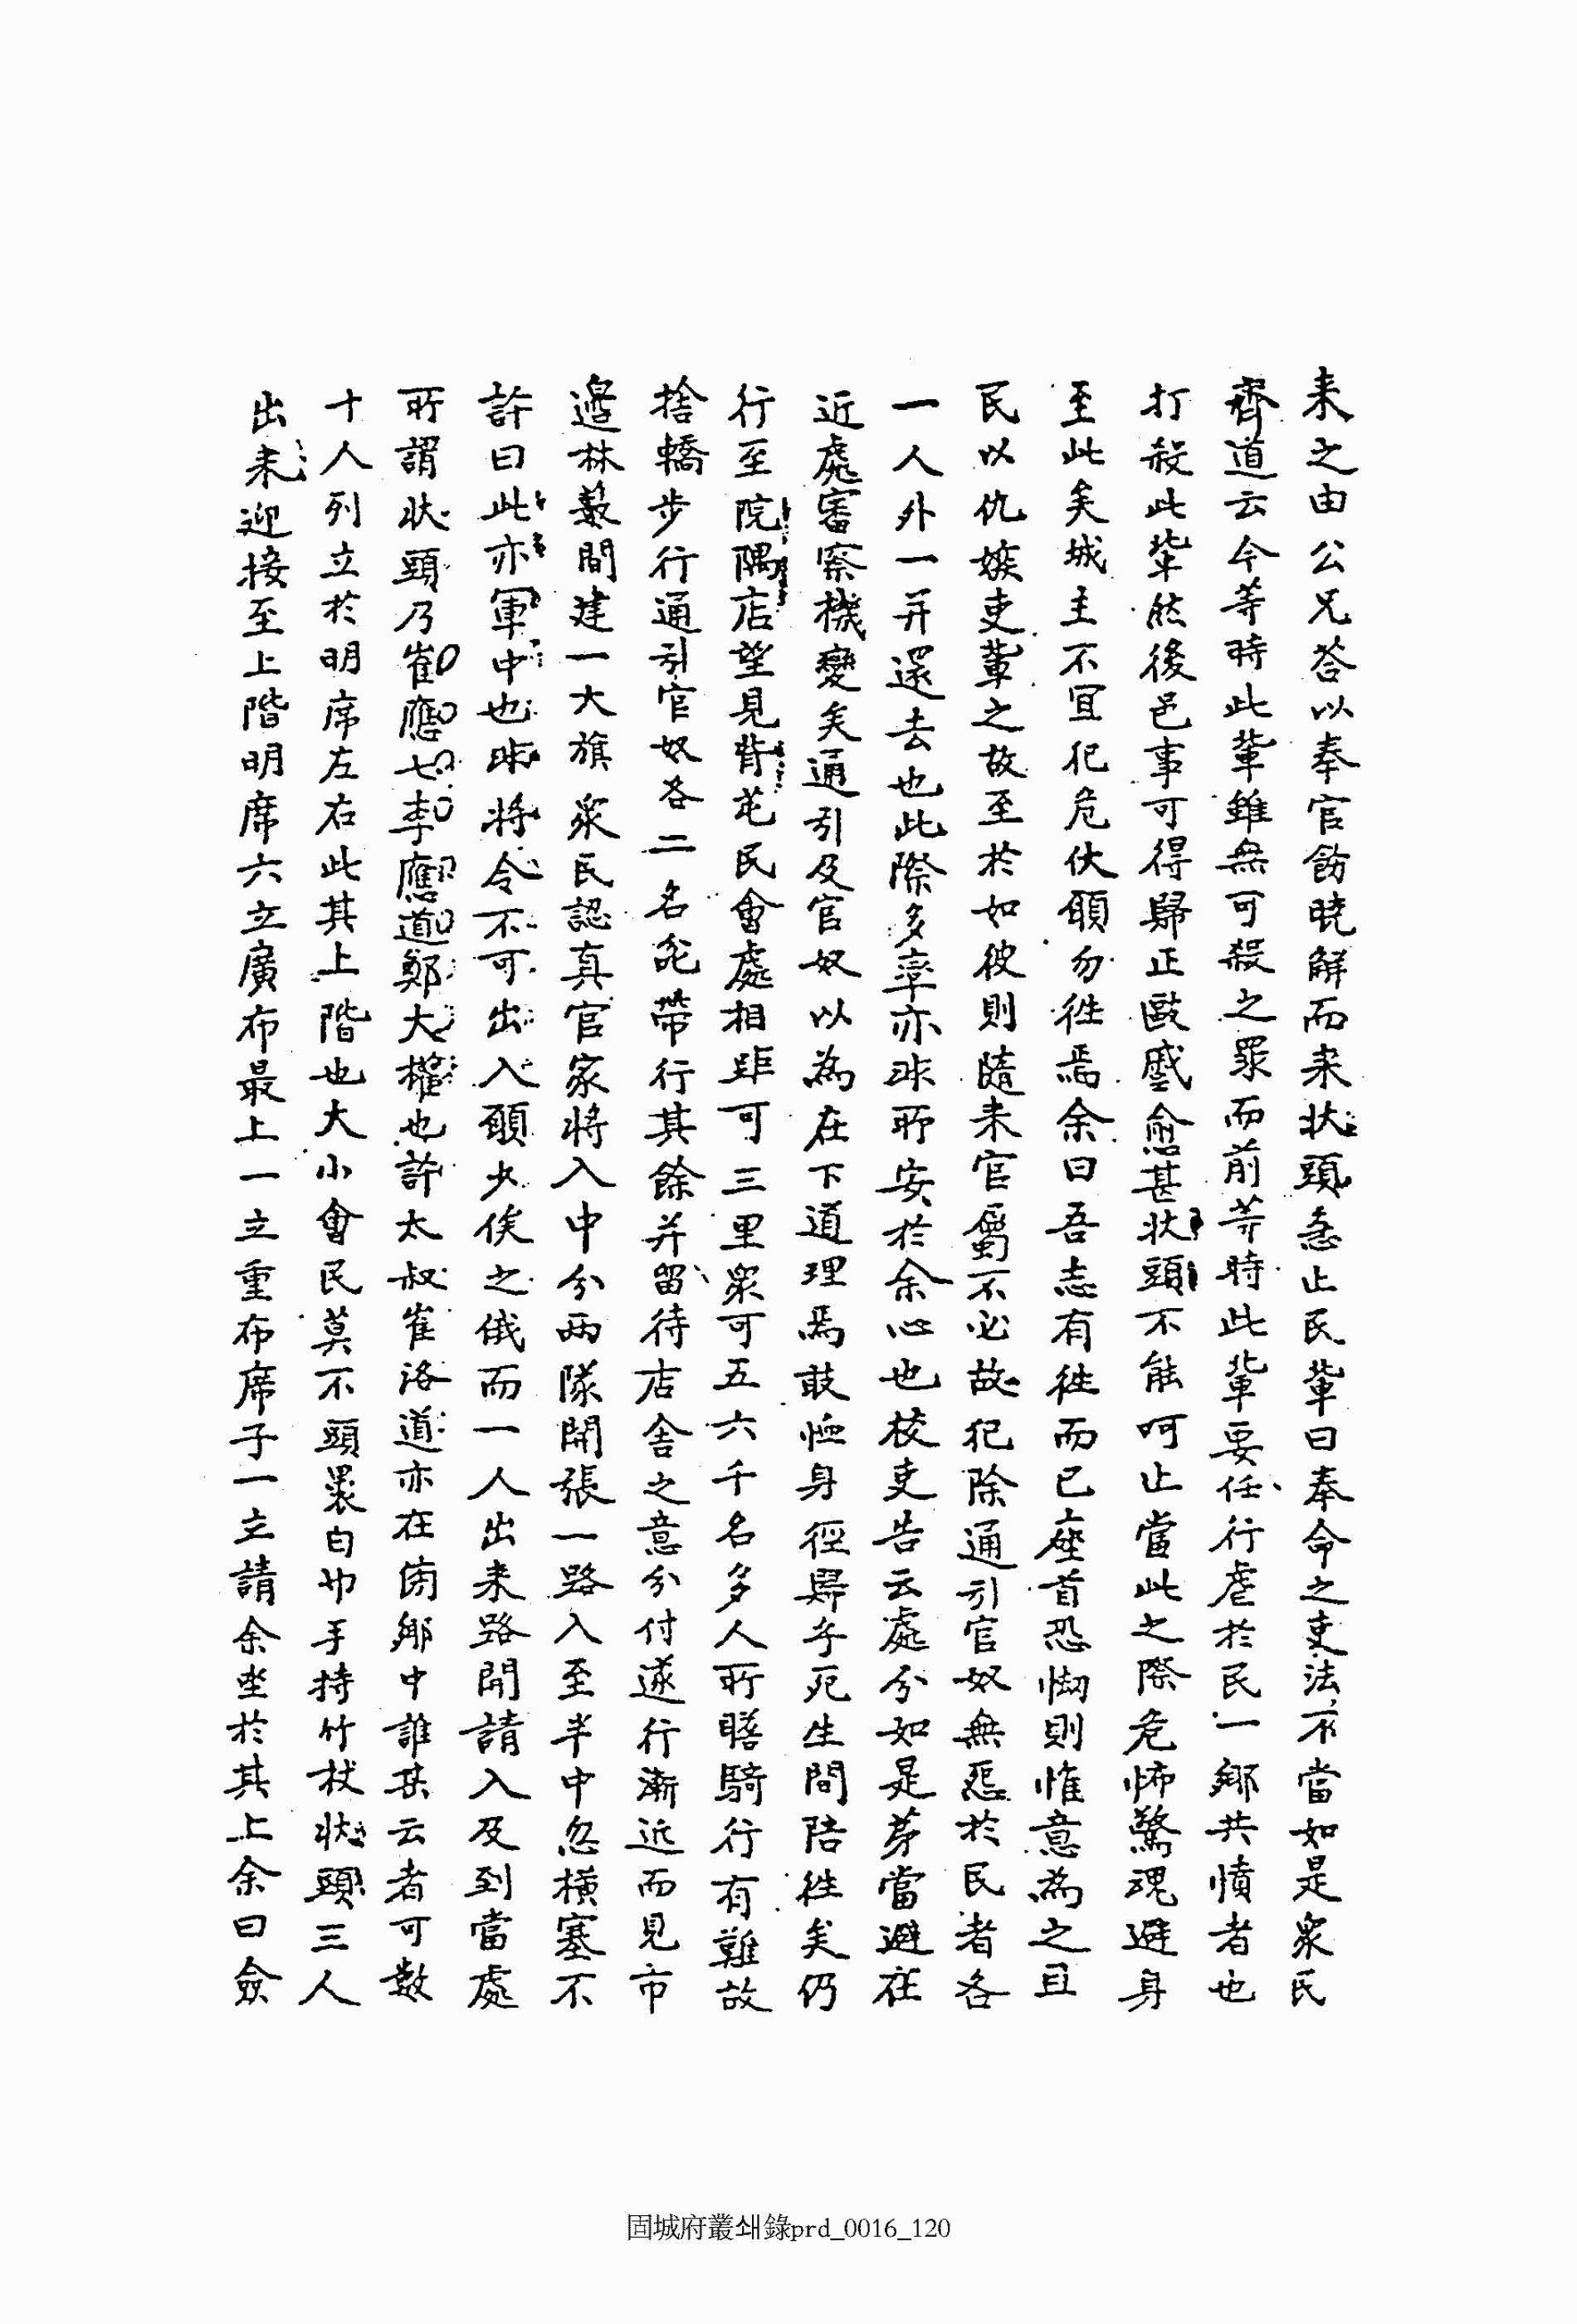 来之由公兄答以奉官飭曉解而来状頭急止民輩曰奉命之吏法不當如是衆民
齊道云今等時此輩雖無可殺之罪而前等時此輩要任行虐於民一鄉共憤者也
打殺此輩然後邑事可得歸正敺慼愈甚状頭不能呵止當此之際危怖驚魂避身
至此矣城主不宜犯危伏願勿徃焉余曰吾志有徃而已座首恐㤼則惟意為之且
民以仇嫉吏輩之故至於如彼則隨来官屬不必故犯除通引官奴無惡於民者各
一人外一并還去也此際多率亦非所安於余心也校吏告云處分如是荨當避在
近處審察機變矣通引及官奴以為在下道理焉敢恤身徑歸乎死生間陪徃矣仍
行至院隅店望見背芚民會處相距可三里衆可五六千名多人所瞻騎行有難故
捨轎步行通引官奴各二名兺帶行其餘并留待店舍之意分付遂行漸近而見市
邊林藪間建一大旗衆民認真官家將入中分兩隊開張一路入至半中忽橫塞不
許曰此亦軍中也非將令不可出入願少俟之俄而一人出来路開請入及到當處
所謂状頭乃崔應七李應道鄭大權也許太叔崔洛道亦在傍鄉中誰某云者可數
十人列立於明席左右此其上階也大小會民莫不頭裹白巾手持竹杖状頭三人
出来迎接至上階明席六立廣布最上一立重布席子一立請余坐於其上余曰僉
固城府叢쇄錄prd_0016_120